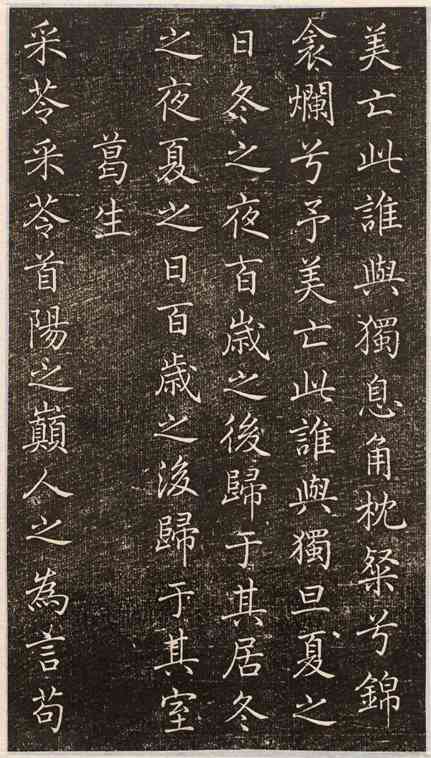 美亡此誰與獨息角枕粲兮錦
衾爛兮予美亡此誰與獨旦夏之
日冬之夜百歲之後歸于其居冬
之夜夏之日百歲之後歸于其室
葛生
采苓采苓首陽之巔人之為言苟